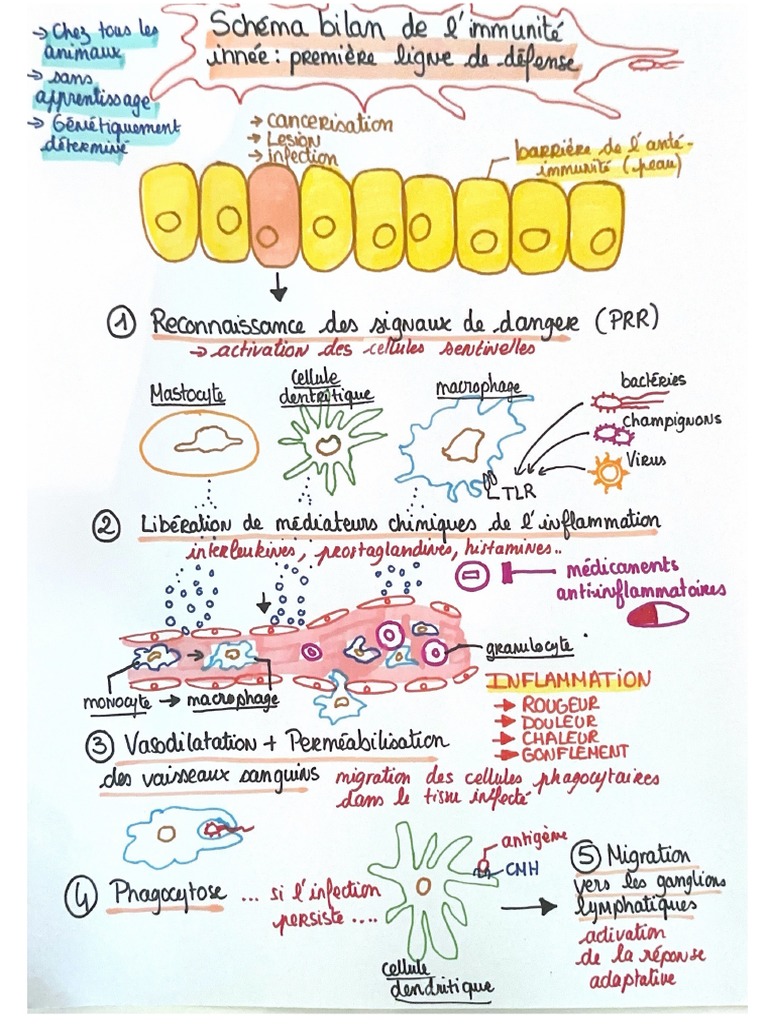 Schéma bilan de l'immunité
innée : première ligne de défense
→ Chez tous les
animaux
→ sans
apprentissage
→ Génétiquement
déterminé
→ cancerisation
→ Lésion
→ infection
barrière de l'anté-
immunité (peau)
① Reconnaissance des signaux de danger (PRR)
→ activation des cellules sentinelles
Mastocyte
cellule
dentritique
macrophage
bactéries
champignons
Virus
TLR
② Libération de médiateurs chimiques de l'inflammation
interleukines, prostaglandines, histamines..
médicaments
anti-inflammatoires
granulocyte
monocyte → macrophage
INFLAMMATION
→ ROUGEUR
→ DOULEUR
→ CHALEUR
→ GONFLEMENT
③ Vasodilatation + Perméabilisation
des vaisseaux sanguins
migration des cellules phagocytaires
dans le tissu infecté
④ Phagocytose ... si l'infection
persiste ....
antigène
CMH
cellule
dendritique
⑤ Migration
vers les ganglions
lymphatiques
activation
de la réponse
adaptative